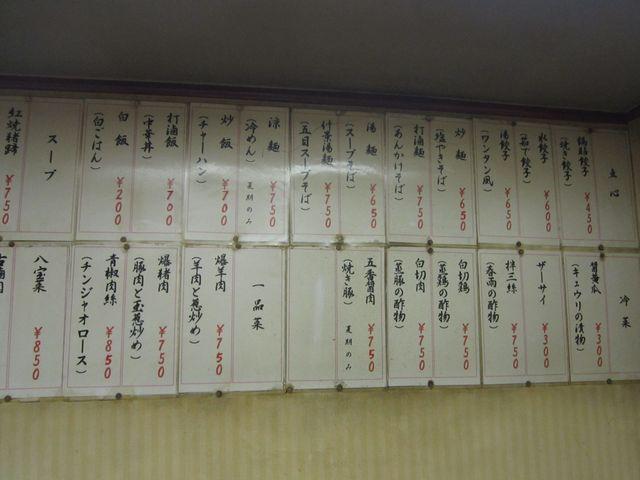 点心
鍋貼餃子
(焼き餃子)
¥450
水餃子
(茹で餃子)
¥600
湯餃子
(ワンタン風)
¥650
炒麺
(塩やきそば)
¥650
打滷麺
(あんかけそば)
¥750
湯麺
(スープそば)
¥650
什景湯麺
(五目スープそば)
¥750
涼麺
(冷めん)
夏期のみ
¥750
炒飯
(チャーハン)
¥700
打滷飯
(中華丼)
¥700
白飯
(白ごはん)
¥200
スープ
紅焼猪蹄
¥750
冷菜
醤黄瓜
(キュウリの漬物)
¥300
ザーサイ
¥300
拌三絲
(春雨の酢物)
¥750
白切鶏
(蒸鶏の酢物)
¥750
白切肉
(蒸豚の酢物)
¥750
五香醤肉
(焼き豚)
¥750
夏期のみ
一品菜
爆羊肉
(羊肉と葱炒め)
¥750
爆猪肉
(豚肉と玉葱炒め)
¥750
青椒肉絲
(チンジャオロース)
¥850
八宝菜
¥850